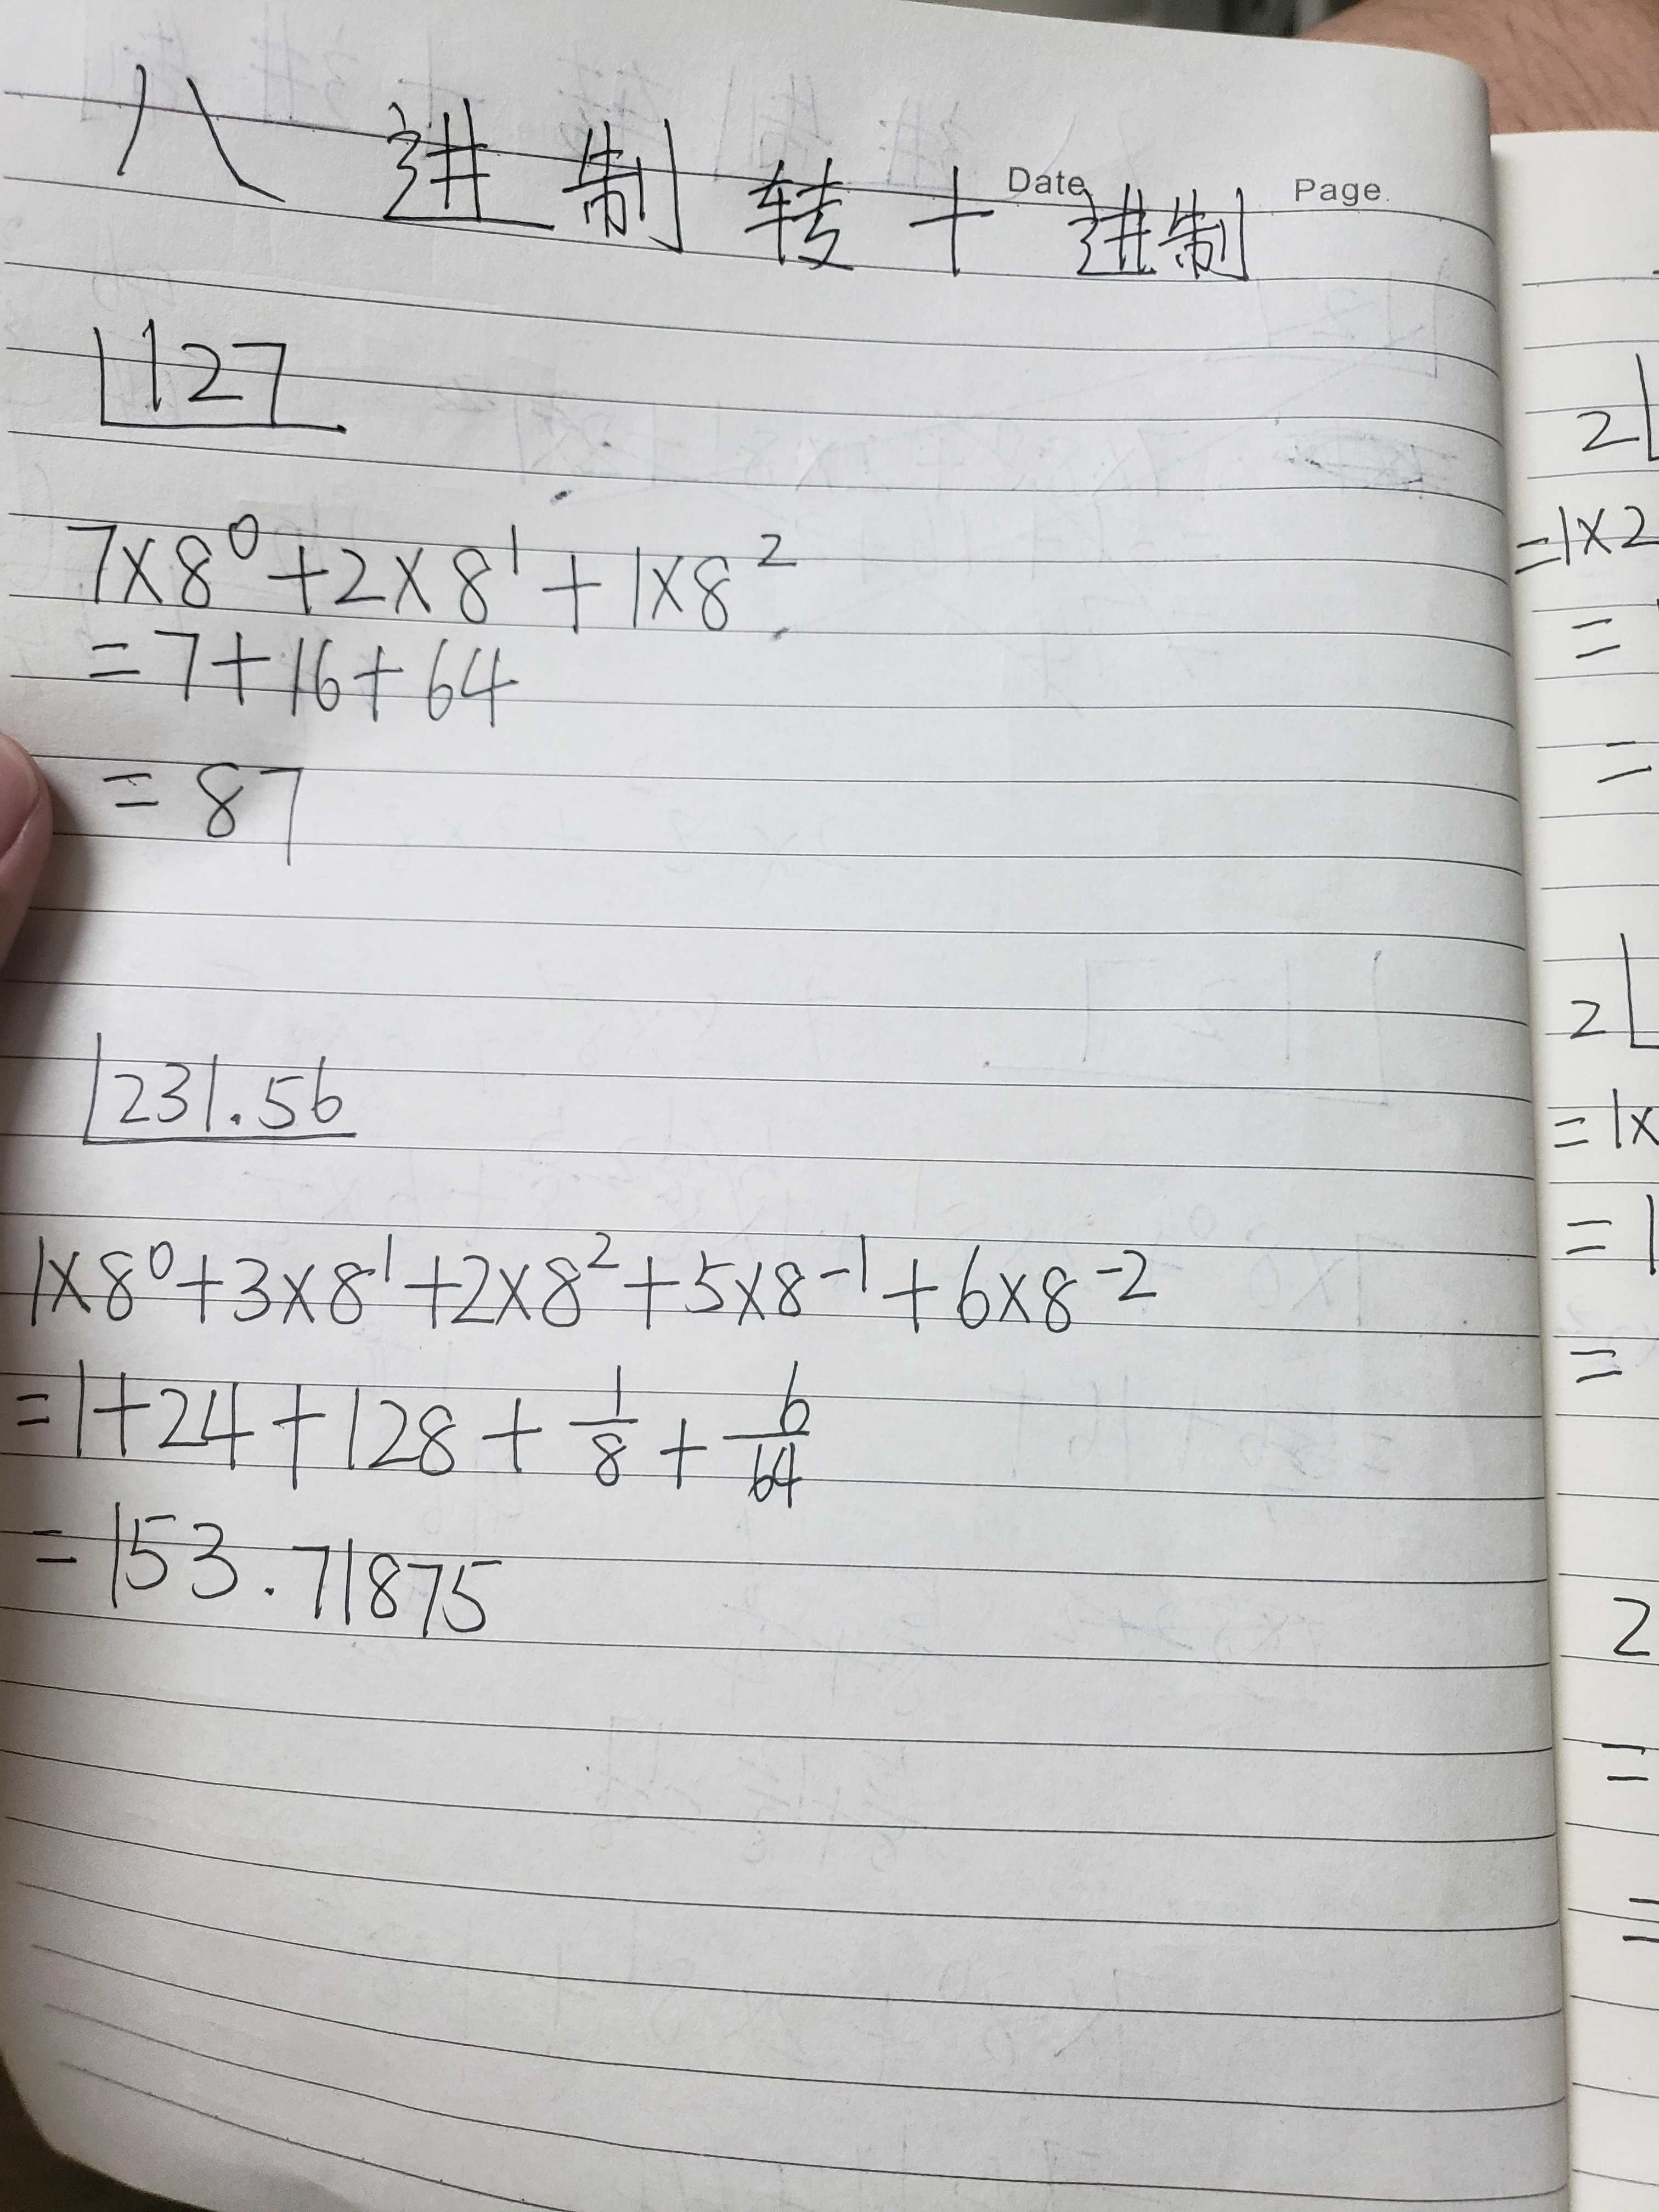 Date Page.
八进制转十进制
127
7×8⁰+2×8¹+1×8²
=7+16+64
=87
231.56
1×8⁰+3×8¹+2×8²+5×8⁻¹+6×8⁻²
=1+24+128+1/8+6/64
=153.71875
2
=1×2
=
=
2
=1×
=1
=
2
=
=